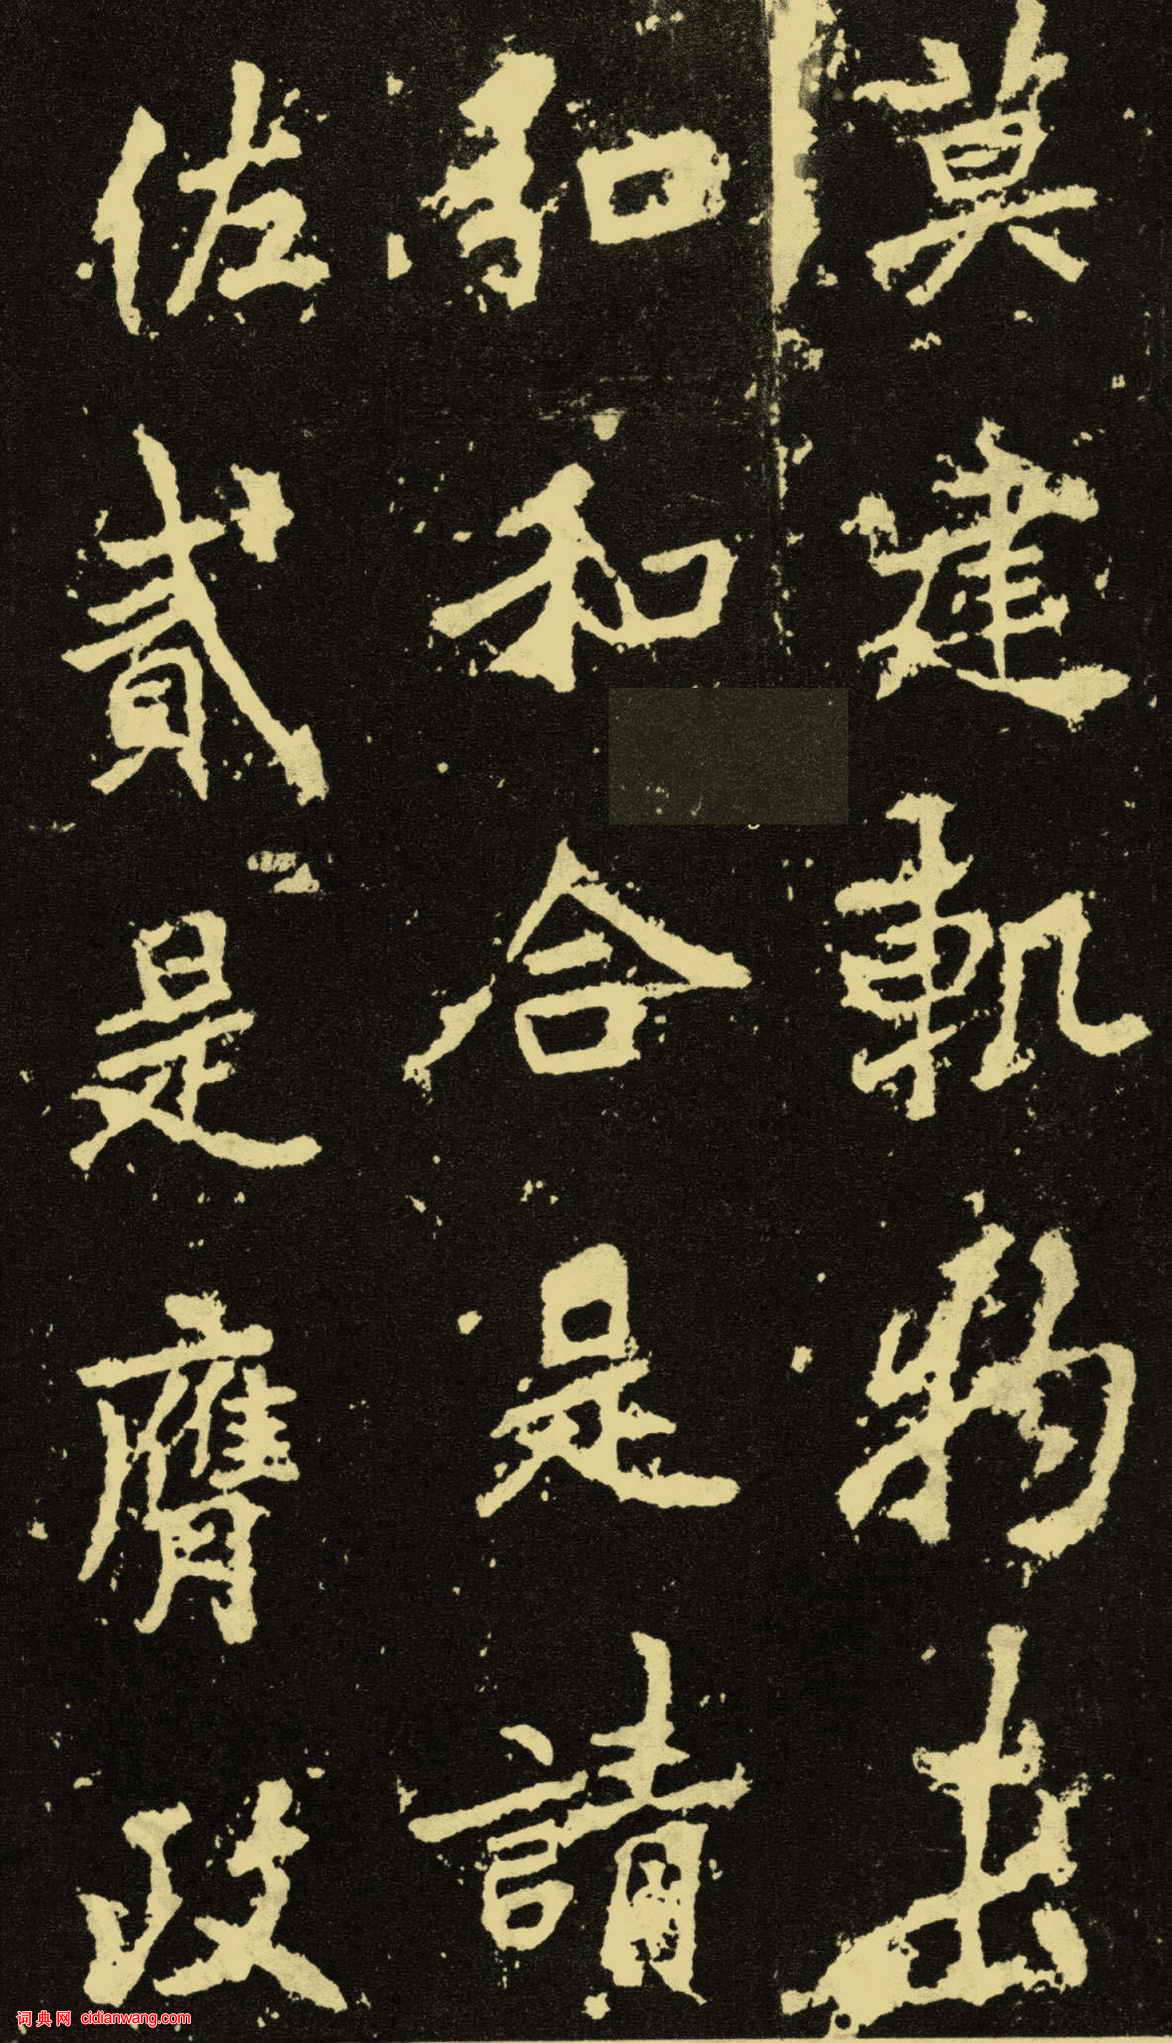 莫建軌物出
和和合是請
佐貳是膺政
词典网 cidianwang.com